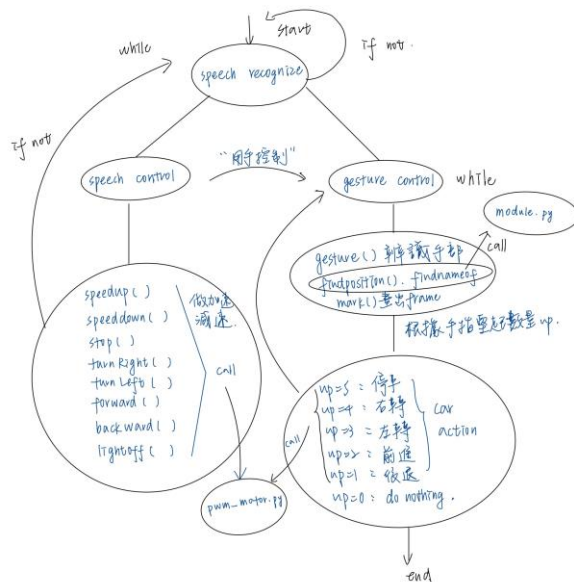 start
while
if not.
speech recognize
if not
speech control
"用手控制"
gesture control
while
module.py
call
gesture() 辨識手部
findposition(). findnameof
mark() 畫出frame
根據手指豎起數量up.
speedup()
speeddown()
stop()
turnRight()
turnLeft()
forward()
backward()
lightoff()
做加速
減速.
call
pwm_motor.py
call
up=5 : 停車
up=4 : 右轉
up=3 : 左轉
up=2 : 前進
up=1 : 後退
up=0 : do nothing.
car
action
end